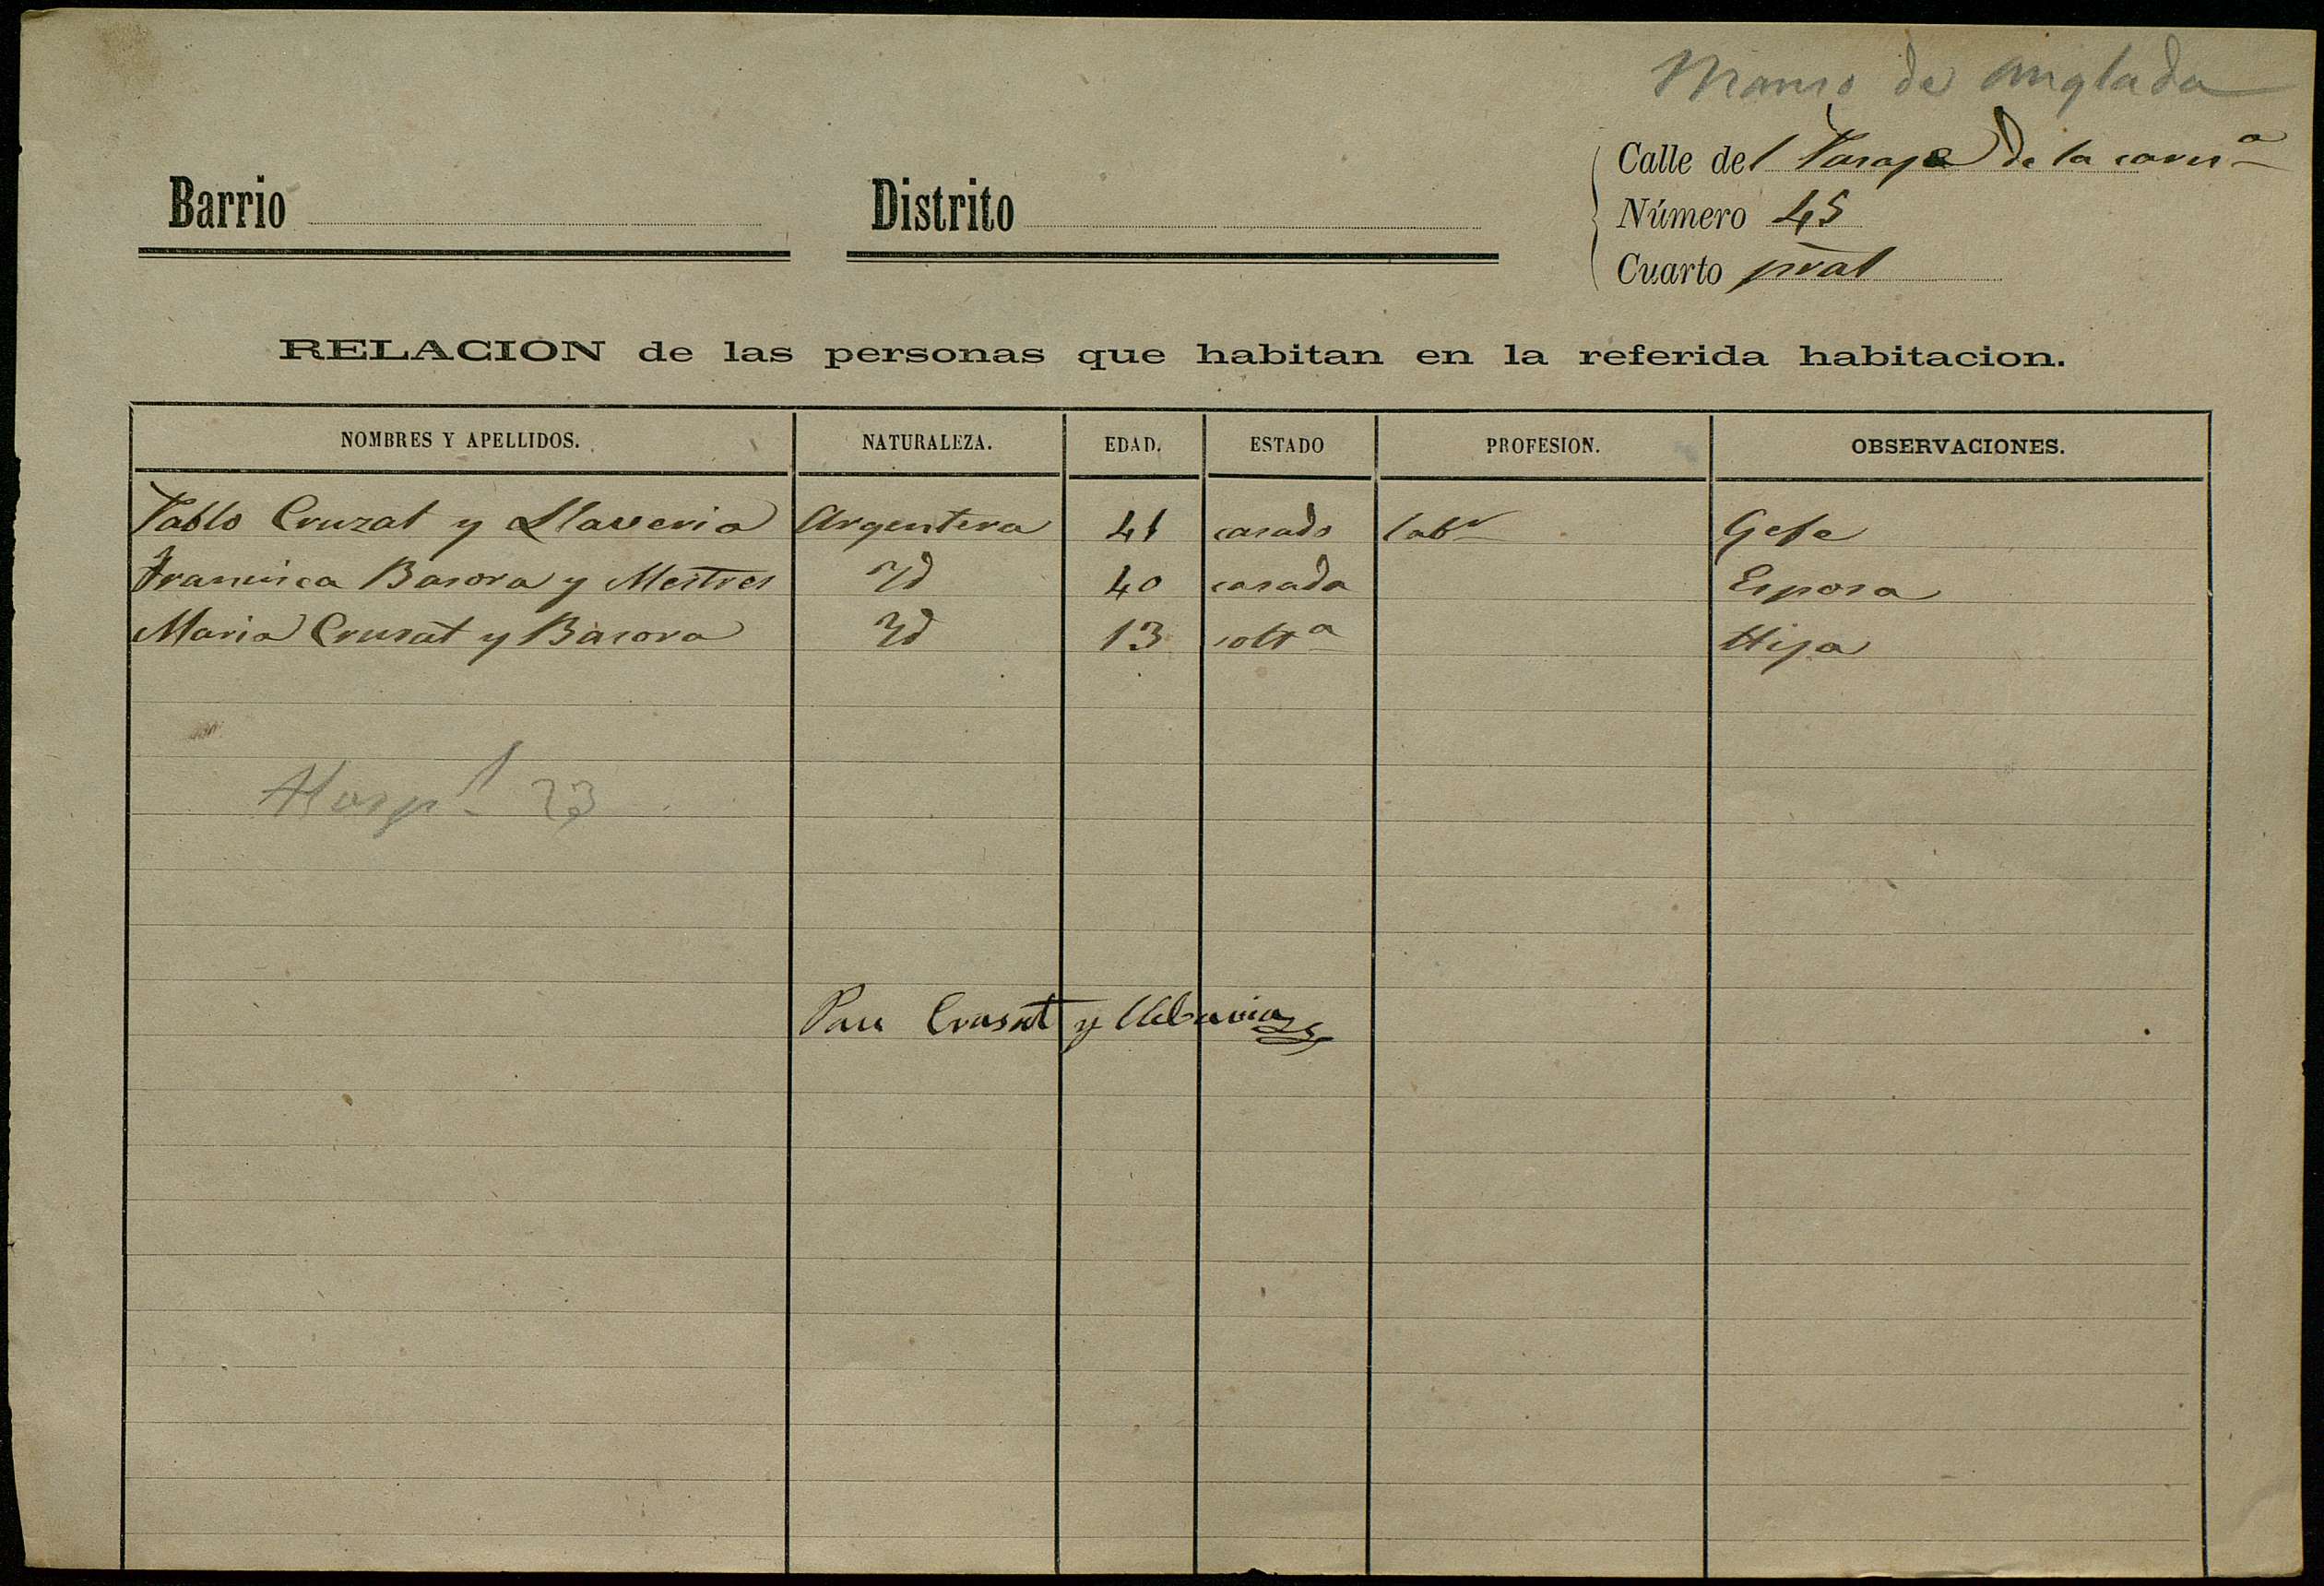 Manso de Anglada
Calle del Parage de la
Barrio
Distrito
Número 45
Cuarto pral
RELACION de las personas que habitan en la referida habitacion.
NOMBRES Y APELLIDOS. NATURALEZA. EDAD. ESTADO PROFESION. OBSERVACIONES.
Pablo Cruzat y Llaveria Argentera 41 casado labr Gefe
Francisca Basora y Mestres Id 40 casada Esposa
Maria Crusat y Basora Id 13 solta Hija
Hospl 23
Pau Crusat y